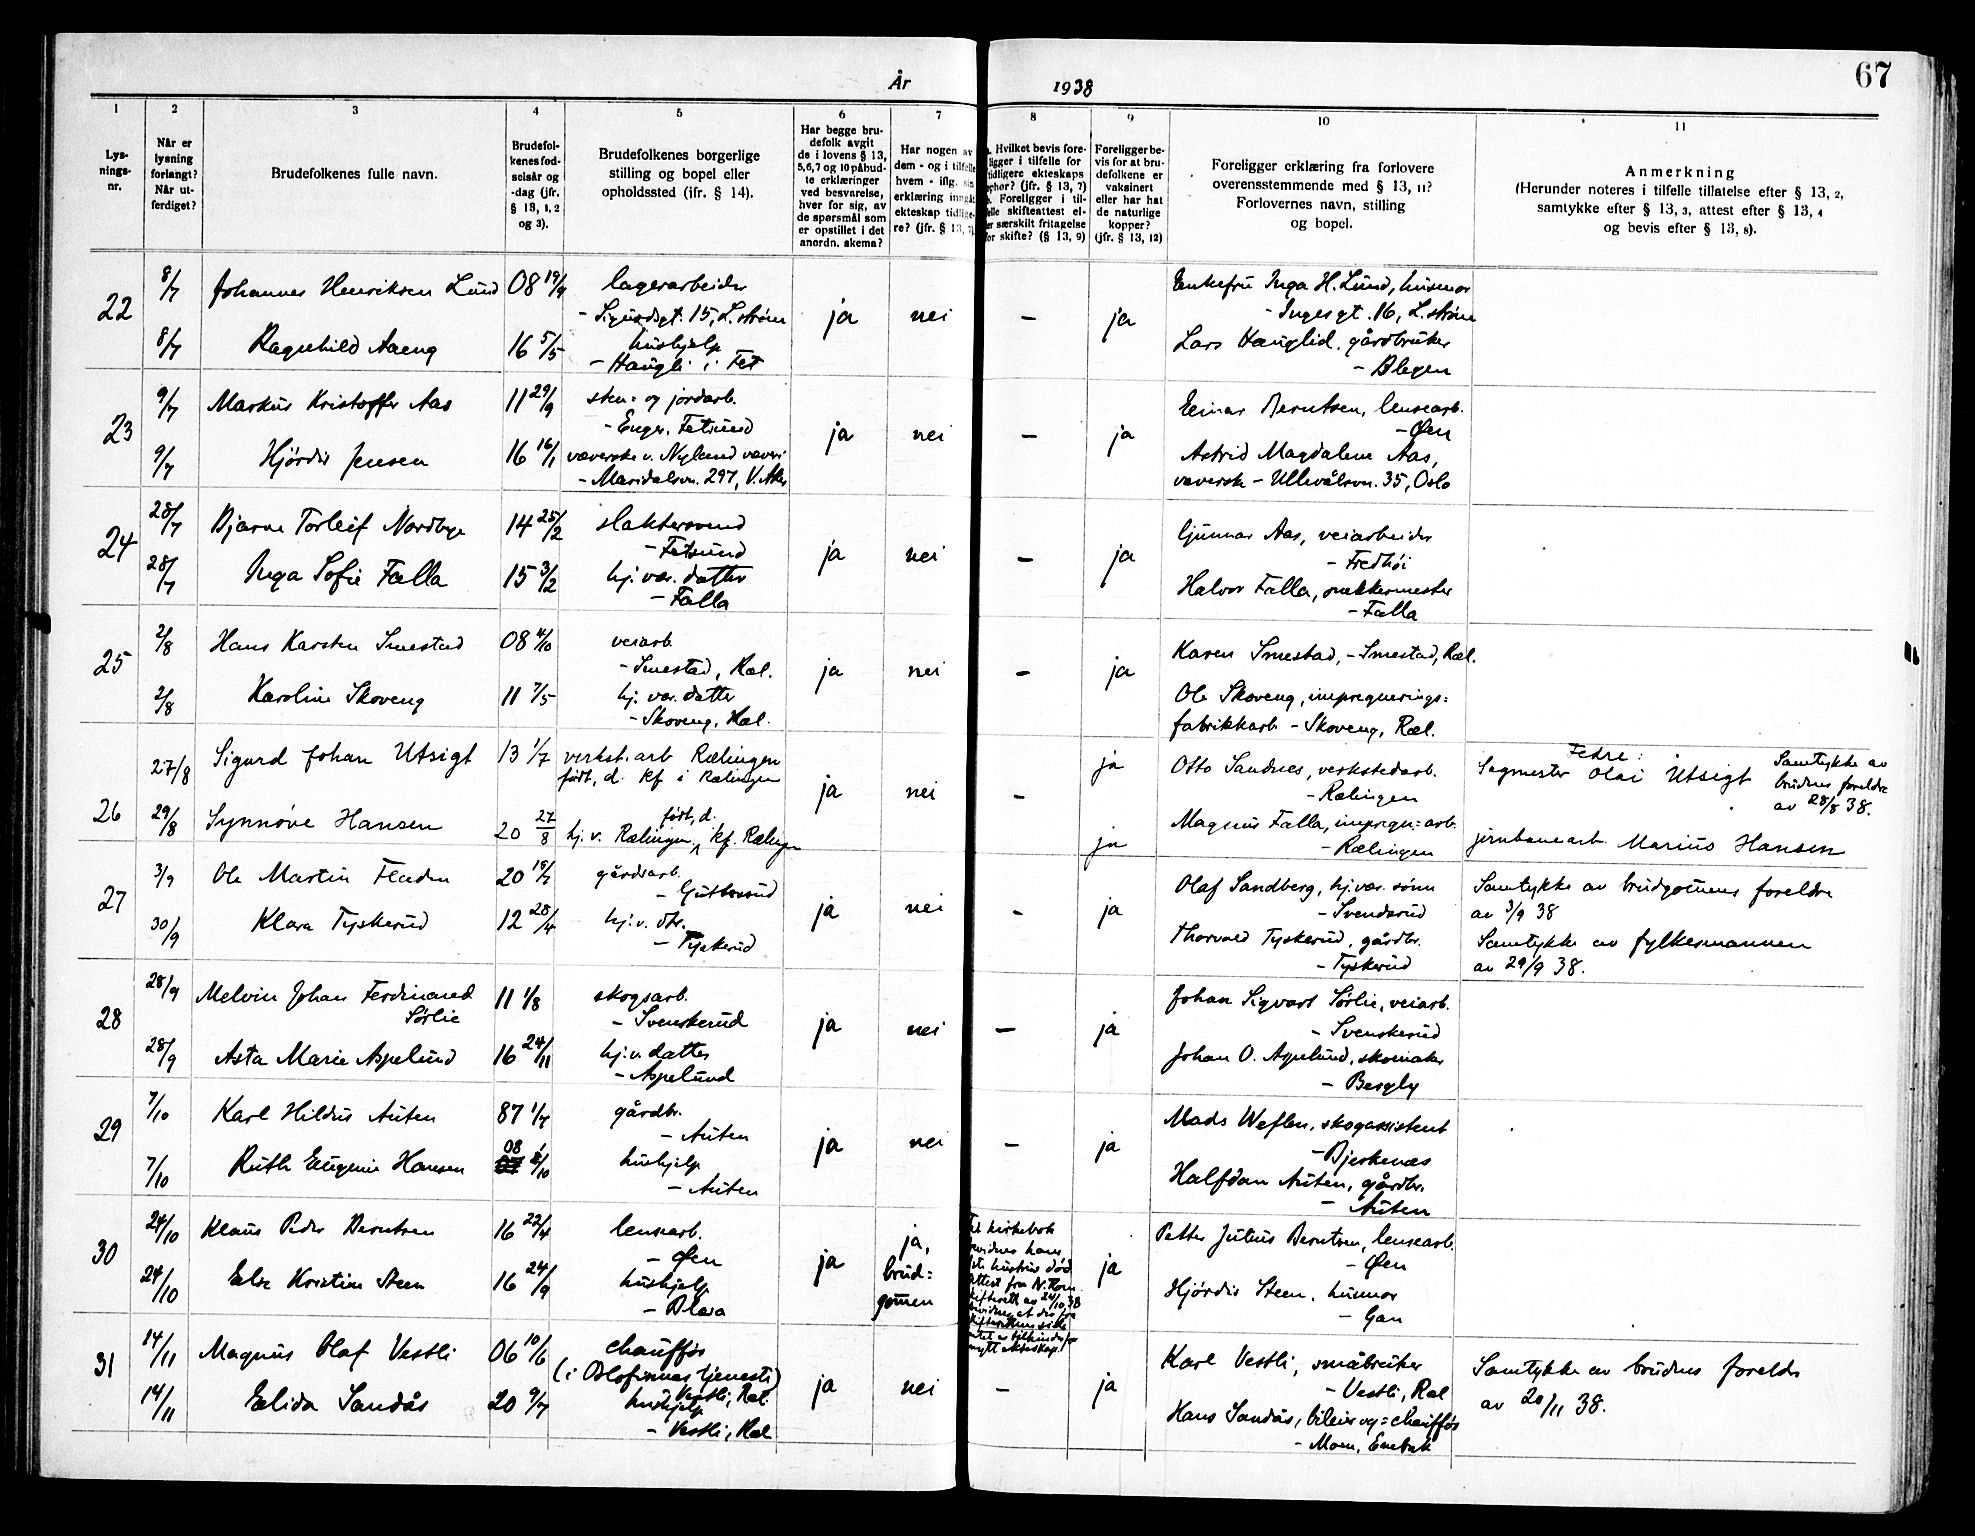 År 1938
67
1
2
3
4
5
6
7
8
9
10
11
Lys-
nings-
nr.
Når er
lysning
forlangt?
Når ut-
ferdiget?
Brudefolkenes fulle navn.
Brudefol-
kenes fød-
selsår og
-dag (jfr.
§ 13, 1, 2
og 3).
Brudefolkenes borgerlige
stilling og bopel eller
opholdssted (ifr. § 14).
Har begge bru-
defolk avgit
de i lovens § 13,
5,6,7 og 10 påbud-
te erklæringer
ved besvarelse,
hver for sig, av
de spørsmål som
er opstillet i det
anordn. skema?
Har nogen av
dem - og i tilfelle
hvem - iflg. sin
erklæring inngåt
ekteskap tidlige-
re? (jfr. § 13, 7).
Hvilket bevis fore-
ligger i tilfelle for
tidligere ekteskaps
ophør? (jfr. § 13, 7)
Foreligger i til-
felle skifteattest el-
er særskilt fritagelse
for skifte? (§ 13, 9)
Foreligger be-
vis for at bru-
defolkene er
vaksinert
eller har hat
de naturlige
kopper?
(jfr. § 13, 12)
Foreligger erklæring fra forlovere
overensstemmende med § 13, 11?
Forlovernes navn, stilling
og bopel.
Anmerkning
(Herunder noteres i tilfelle tillatelse efter § 13, 2,
samtykke efter § 13, 3, attest efter § 13, 4
og bevis efter § 13, 8).
22
8/7 Johannes Henriksen Lund 08 19/9 lagerarbeider
- Sigurdsgt. 15, L.strøm
8/7 Ragnhild Aaeng 16 5/5 hushjelp
- Haugli i Fet
ja nei - ja
Enkefru Inga H. Lund, husmor
- Ingesgt. 16, L.strøm
Lars Hauglid, gårdbruker
23
9/7 Markus Kristoffer Aas 11 29/9 sten- og jordarb.
- Enger, Fetsund
9/7 Hjørdis Jensen 16 16/1 væverske v. Nylund væveri
- Maridalsvn. 297, V. Aker
ja nei - ja
Einar Berntsen, lensearb.
- Øen
Astrid Magdalene Aas,
væversk - Ullevålsvn. 35, Oslo
24
28/7 Bjarne Torleif Nordbye 14 25/2 slaktersvend
- Fetsund
28/7 Inga Sofie Falla 15 3/2 hj. vær. datter
- Falla
ja nei - ja
Gunnar Aas, veiarbeider
- Fredhøi
Halvor Falla, snekkermester
- Falla
25
2/8 Hans Karsten Smestad 08 4/10 veiarb.
- Smestad, Ræl.
2/8 Karoline Skoveng 11 7/5 hj. vær. datter
- Skoveng, Ræl.
ja nei - ja
Karen Smestad, - Smestad, Ræl.
Ole Skoveng, impregnerings-
fabrikkarb - Skoveng, Ræl.
26
27/8 Sigurd Johan Utsigt 13 1/7 verkst.arb Rælingen
født, d. kf i Rælingen
29/8 Synnøve Hansen 20 27/8 født, d.
hj. v. Rælingen, kf. Rælingen
ja nei - ja
ja
Otto Sandnes, verkstedarb.
- Rælingen
Magnus Falla, impregn-arb.
- Rælingen
Fedre:
Sagmester Olai Utsigt
jernbanearb. Marius Hansen
Samtykke av
brudens foreldre
av 28/8 38.
27
3/9 Ole Martin Fladen 20 gårdsarb.
30/9 Klara Tyskerud 12 28/4 hj. v. dtr.
- Tyskerud
ja nei - ja
Olaf Sandberg, hj. vær. sønn
- Svendsrud
Thorvald Tyskerud, gårdbr.
- Tyskerud
Samtykke av brudgommens foreldre
av 3/9 38
Samtykke av fylkesmannen
av 29/9 38.
28
28/9 Melvin Johan Ferdinand
Sørlie 11 1/8 skogsarb.
- Svenskerud
28/9 Asta Marie Aspelund 16 24/11 hj. v. datter
- Aspelund
ja nei - ja
Johan Sigvart Sørlie, veiarb.
- Svenskerud
Johan O. Aspelund, skomaker
- Bergly
29
7/10 Karl Hildus Auten 87 1/7 gårdbr.
- Auten
7/10 Ruth Eugenie Hansen 08 hushjelp
- Auten
ja nei - ja
Mads Weflen, skogassistent
- Bjerkenæs
Halfdan Auten, gårdbr.
- Auten
30
24/10 Klaus Peder Berntsen 16 22/4 lensearb.
- Øen
24/10 Else Kristine Steen 16 24/9 hushjelp
ja
ja,
brud-
gommen
kirkebok
hans
hustrus død
attest fra
av 24/10 38
nytt ekteskap.
ja
Petter Julius Berntsen, lensearb.
- Øen
Hjørdis Steen, husmor
- Gan
31
14/11 Magnus Olaf Vestli 06 10/6 chauffør
Vestli, Ræl.
14/11 Elida Sandås 20 9/7 hushjelp
- Vestli, Ræl
ja nei - ja
Karl Vestli, småbruker
- Vestli, Ræl
Hans Sandås, bileier og -chauffør
- Moen, Enebak
Samtykke av brudens foreldre
av 20/11 38.